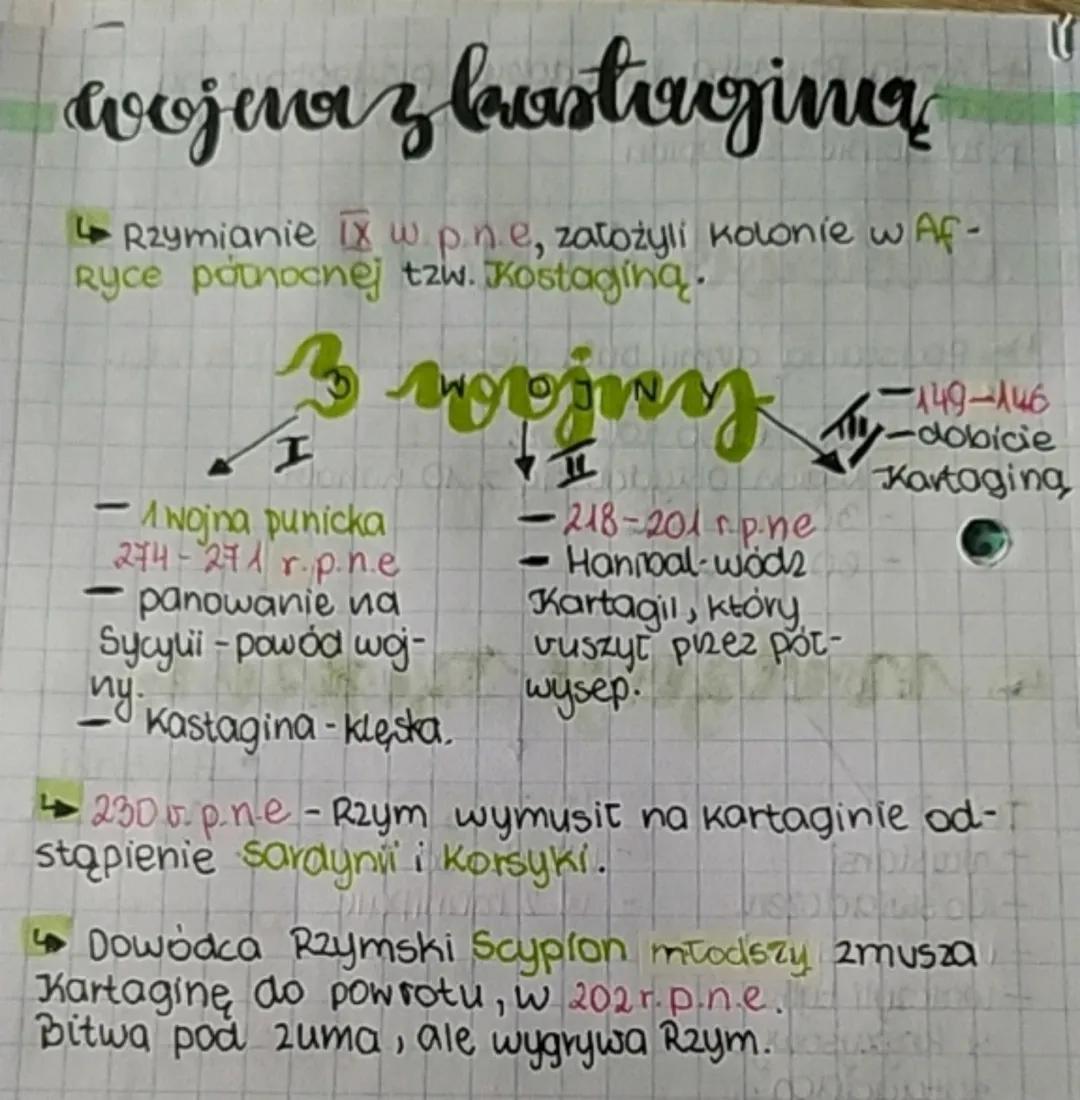 wojna z kartaginą
↳ Rzymianie IX w p.n.e, założyli kolonie w Af-
ryce północnej tzw. Kostaginą.
3 wojny
3 WOJNY
I
II
III
- 149-146
- dobicie
Kartaginą
- 1 wojna punicka
274-271 r.p.n.e
- panowanie na
Sycylii - powód woj-
ny.
- Kastagina - klęska.
- 218-201 r.p.ne
- Hannibal-wódz
Kartagii, który
ruszył przez pół-
wysep.
↳ 230 r.p.n.e - Rzym wymusił na kartaginie od-
stąpienie Sardynii i Korsyki.
↳ Dowódca Rzymski Scypion młodszy zmusza
Kartaginę do powrotu, w 202 r.p.n.e.
Bitwa pod zuma, ale wygrywa Rzym.